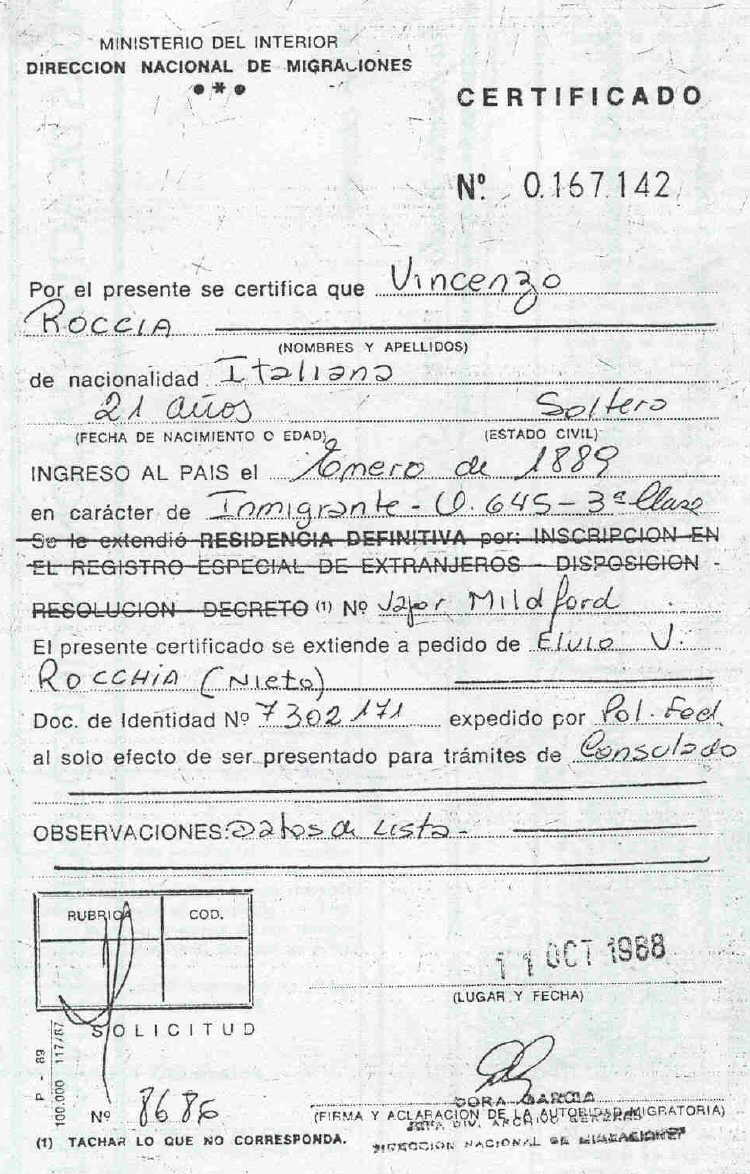 MINISTERIO DEL INTERIOR
DIRECCION NACIONAL DE MIGRACIONES
CERTIFICADO
Nº 0.167.142
Por el presente se certifica que Vincenzo
ROCCIA
(NOMBRES Y APELLIDOS)
de nacionalidad Italiana
21 años Soltero
(FECHA DE NACIMIENTO O EDAD) (ESTADO CIVIL)
INGRESO AL PAIS el 2 Enero de 1889
en carácter de Inmigrante - V. 645 - 3ª Clase
Se le extendió RESIDENCIA DEFINITIVA por: INSCRIPCION EN
EL REGISTRO ESPECIAL DE EXTRANJEROS - DISPOSICION -
RESOLUCION - DECRETO (1) Nº Vapor Mildford
El presente certificado se extiende a pedido de Elvio V.
ROCCHIA (Nieto)
Doc. de Identidad Nº 7302171 expedido por Pol. Fed.
al solo efecto de ser presentado para trámites de Consulado
OBSERVACIONES: Datos de Lista -
RUBRICA COD.
11 OCT 1988
(LUGAR Y FECHA)
SOLICITUD
P - 89
100.000 117/87
Nº 8686
DORA GARCIA
(FIRMA Y ACLARACION DE LA AUTORIDAD MIGRATORIA)
JEFA DIV. ARCHIVO GENERAL
DIRECCION NACIONAL DE MIGRACIONES
(1) TACHAR LO QUE NO CORRESPONDA.